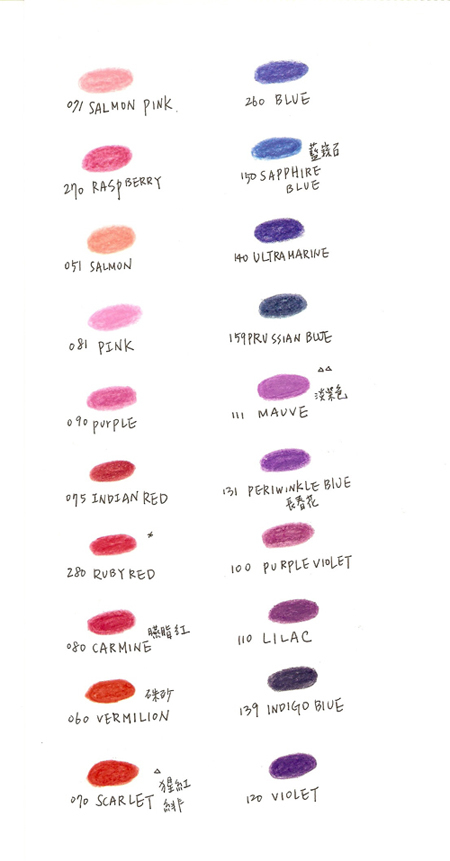 071 SALMON PINK.
270 RASPBERRY
051 SALMON
081 PINK
090 PURPLE
075 INDIAN RED
*
280 RUBY RED
臙脂紅
080 CARMINE
硃砂
060 VERMILION
△
猩紅
070 SCARLET
緋
260 BLUE
藍鋑石
150 SAPPHIRE
BLUE
140 ULTRAMARINE
159 PRUSSIAN BLUE
△△
淡紫色
111 MAUVE
131 PERIWINKLE BLUE
長春花
100 PURPLE VIOLET
110 LILAC
139 INDIGO BLUE
120 VIOLET